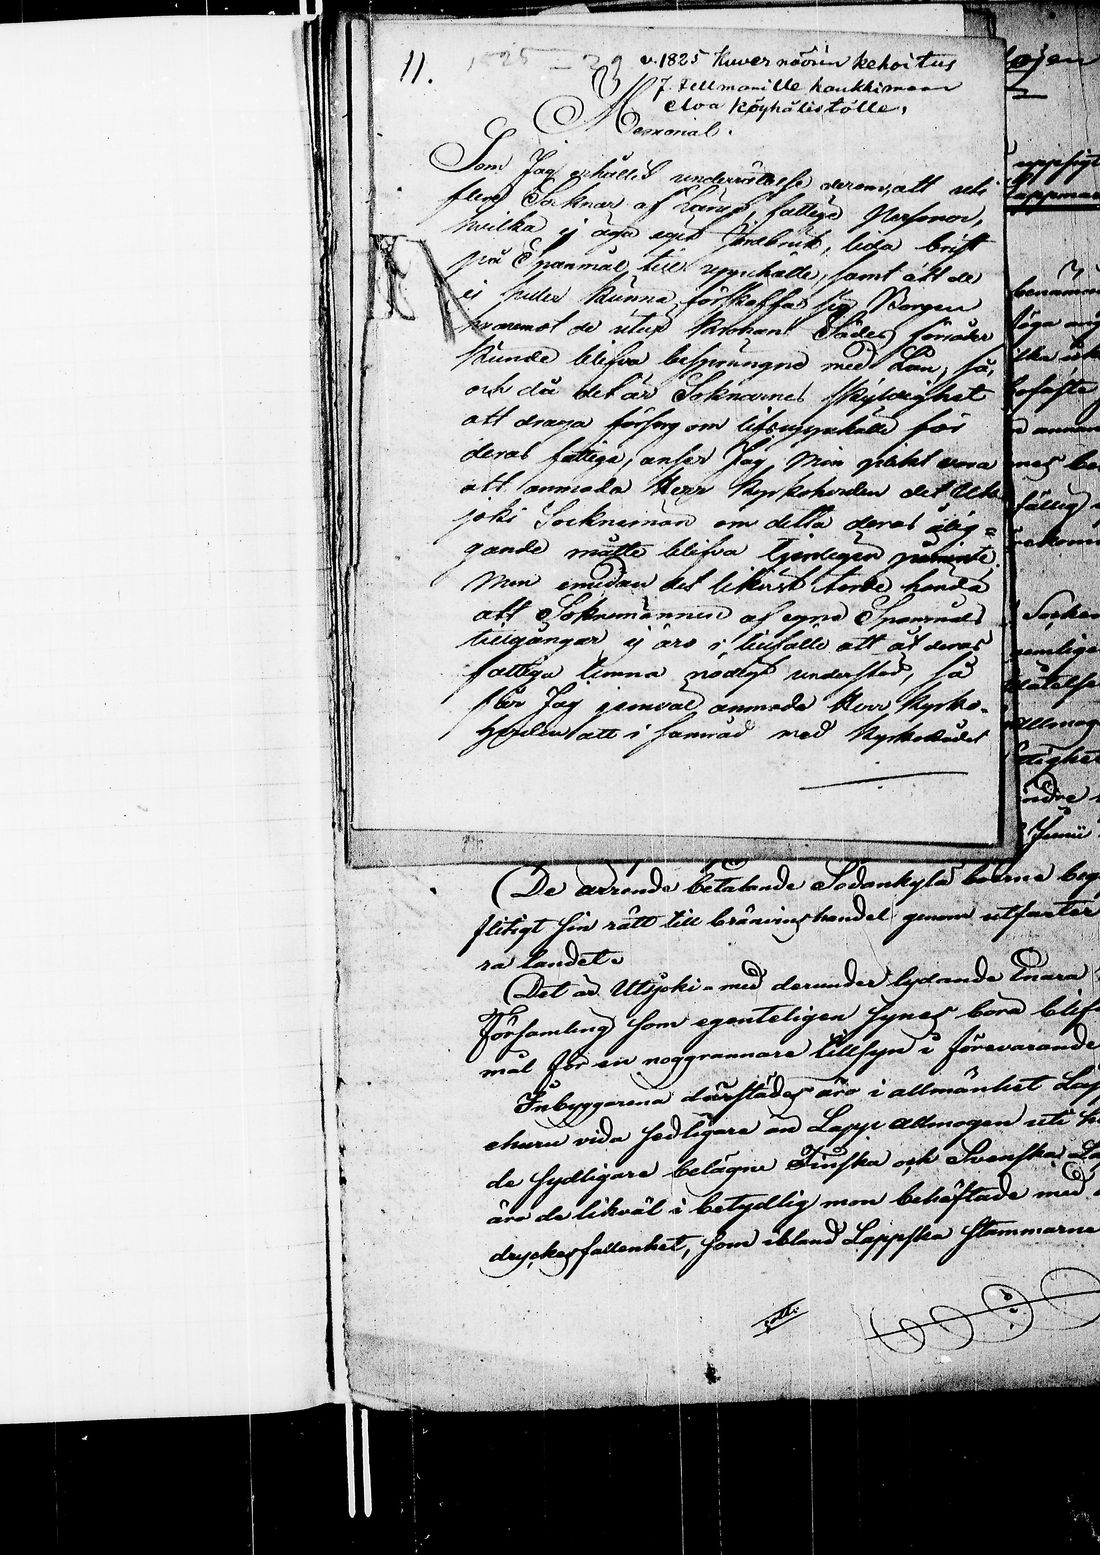 11. 1825 – 29 v. 1825 Kuvernöörin kehoitus
J. Fellmanille hankkimaan
eloa köyhälistölle.
Memorial.
Som Jag erhållit underrättelse derom, att uti
flere Soknar af Länet, fattige Personer,
hvilka ej äga eget Jordbruk, lida brist
på Spanmål till uppehälle, samt att de
ej heller kunna förskaffa sig Borgen
hvaremot de utur Kronans Sädes förråder
kunde blifva besprungne med Lån, så,
och då det är Soknarnes skyldighet
att draga försorg om lifsuppehälle för
deras fattige, anser Jag min pligt vara
att anmoda Herr Kyrkoherden det Uts-
joki Socknemän om detta deras ålig=
gande måtte blifva tjenligen påminte.
Men emedan det likväl torde hända
att Soknemännen af egna Spanmåls
tillgångar ej äro i tillfälle att åt deras
fattiga lemna nödigt understöd, så
får Jag jemväl anmoda Herr Kyrko-
herden att i samråd med Kyrkorådet
De arrende betalande Sodankylä boerne beg
flitigt sin rätt till bränvinshandel genom utfarter
ra landet.
Det är Utsjoki – med derunder lydande Enara
Församling som egenteligen synes böra blif
mål för en noggrannare tillsyn i förevarande
Inbyggarena därstädes äro i allmänhet Lap
ehuru vida sedligare än Lapp Allmogen uti
de sydligare belägne Finska och Svenska La
äro de likväl i betydlig mon behäftade med
dryckesfallenhet, som ibland Lappska stammarne